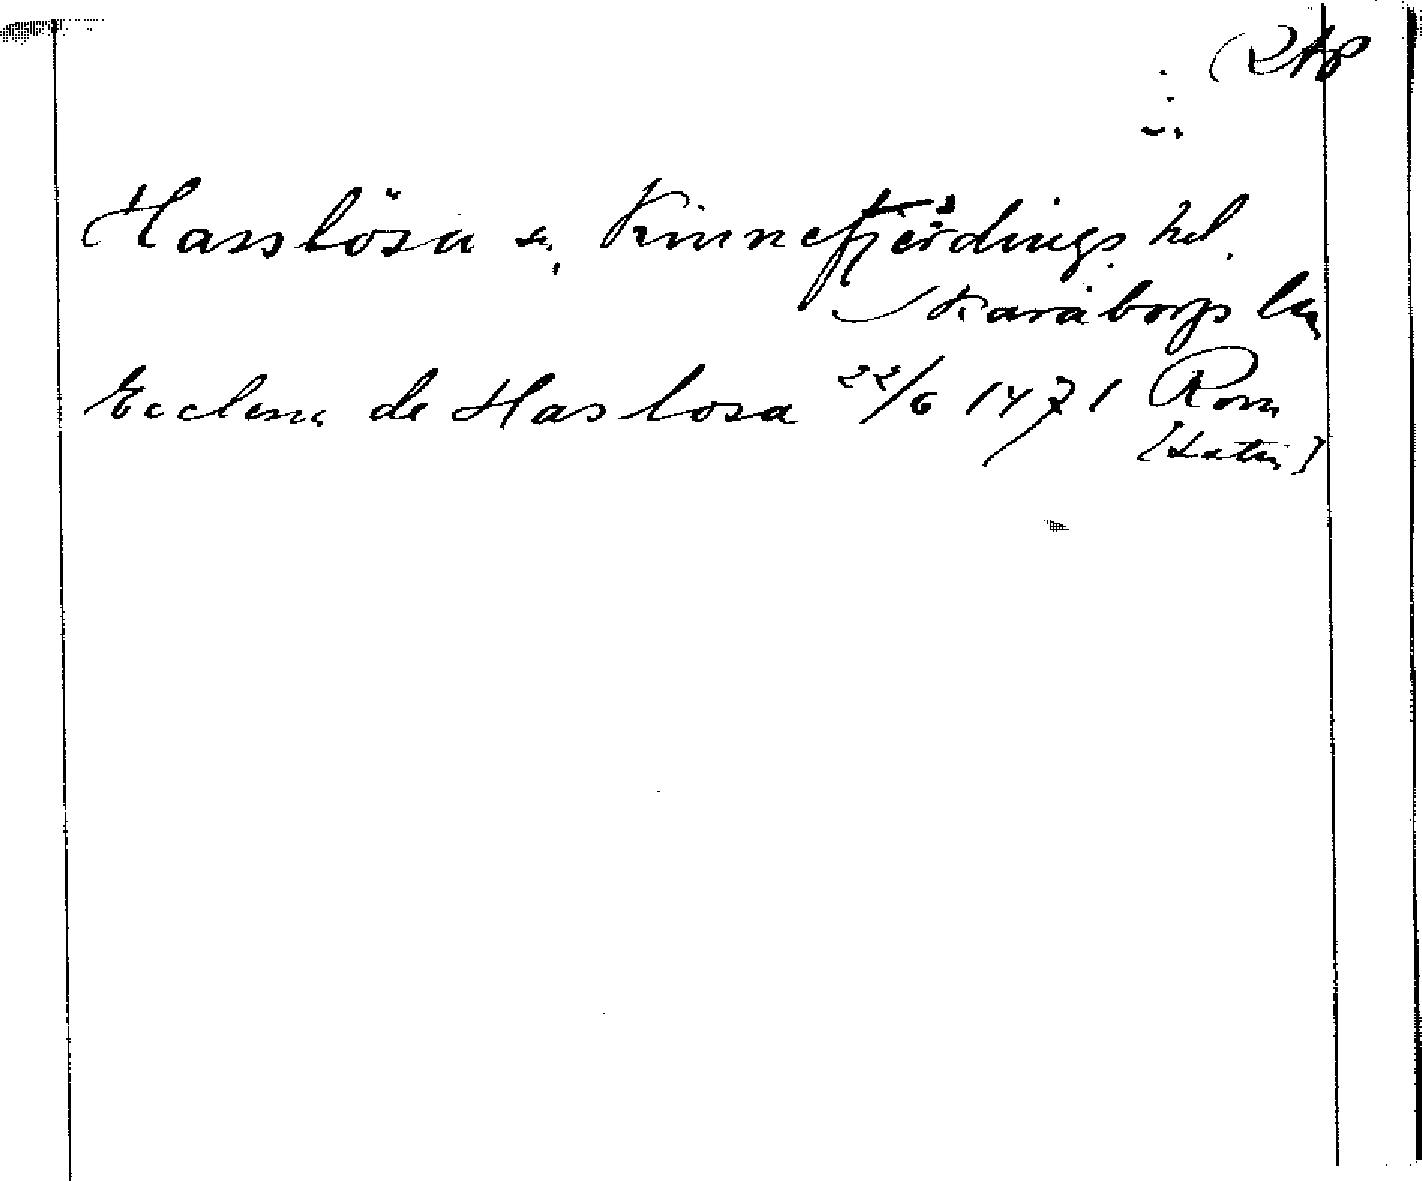 Hasslösa sn, Kinnefjerdings hd.
Skaraborgs län
Ecclesia de Haslosa 22/6 1471 Rom
[Latin]